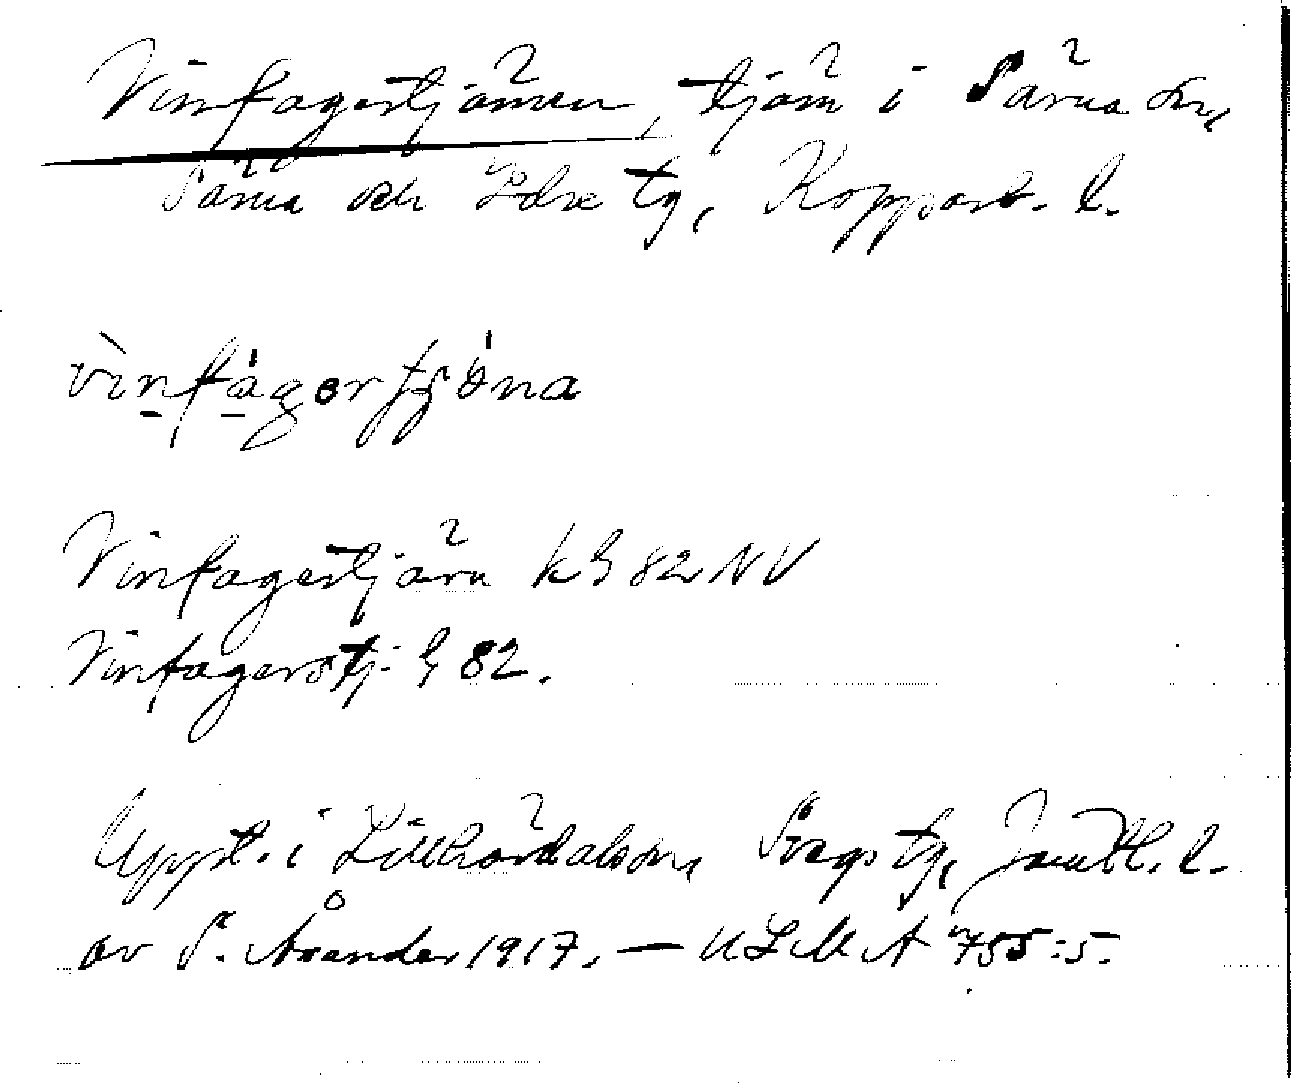 Vinfagertjärnen, tjärn i Särna sn,
Särna och Idre tg, Kopparb. l.
vìnfágərtjö́na
Vinfagertjärn k § 82 NV
Vinfagerstj. § 82.
Uppt. i Lillhärdals sn, Svegs tg, Jämtl. l.
av S. Årander 1917. — ULMA 755:5.